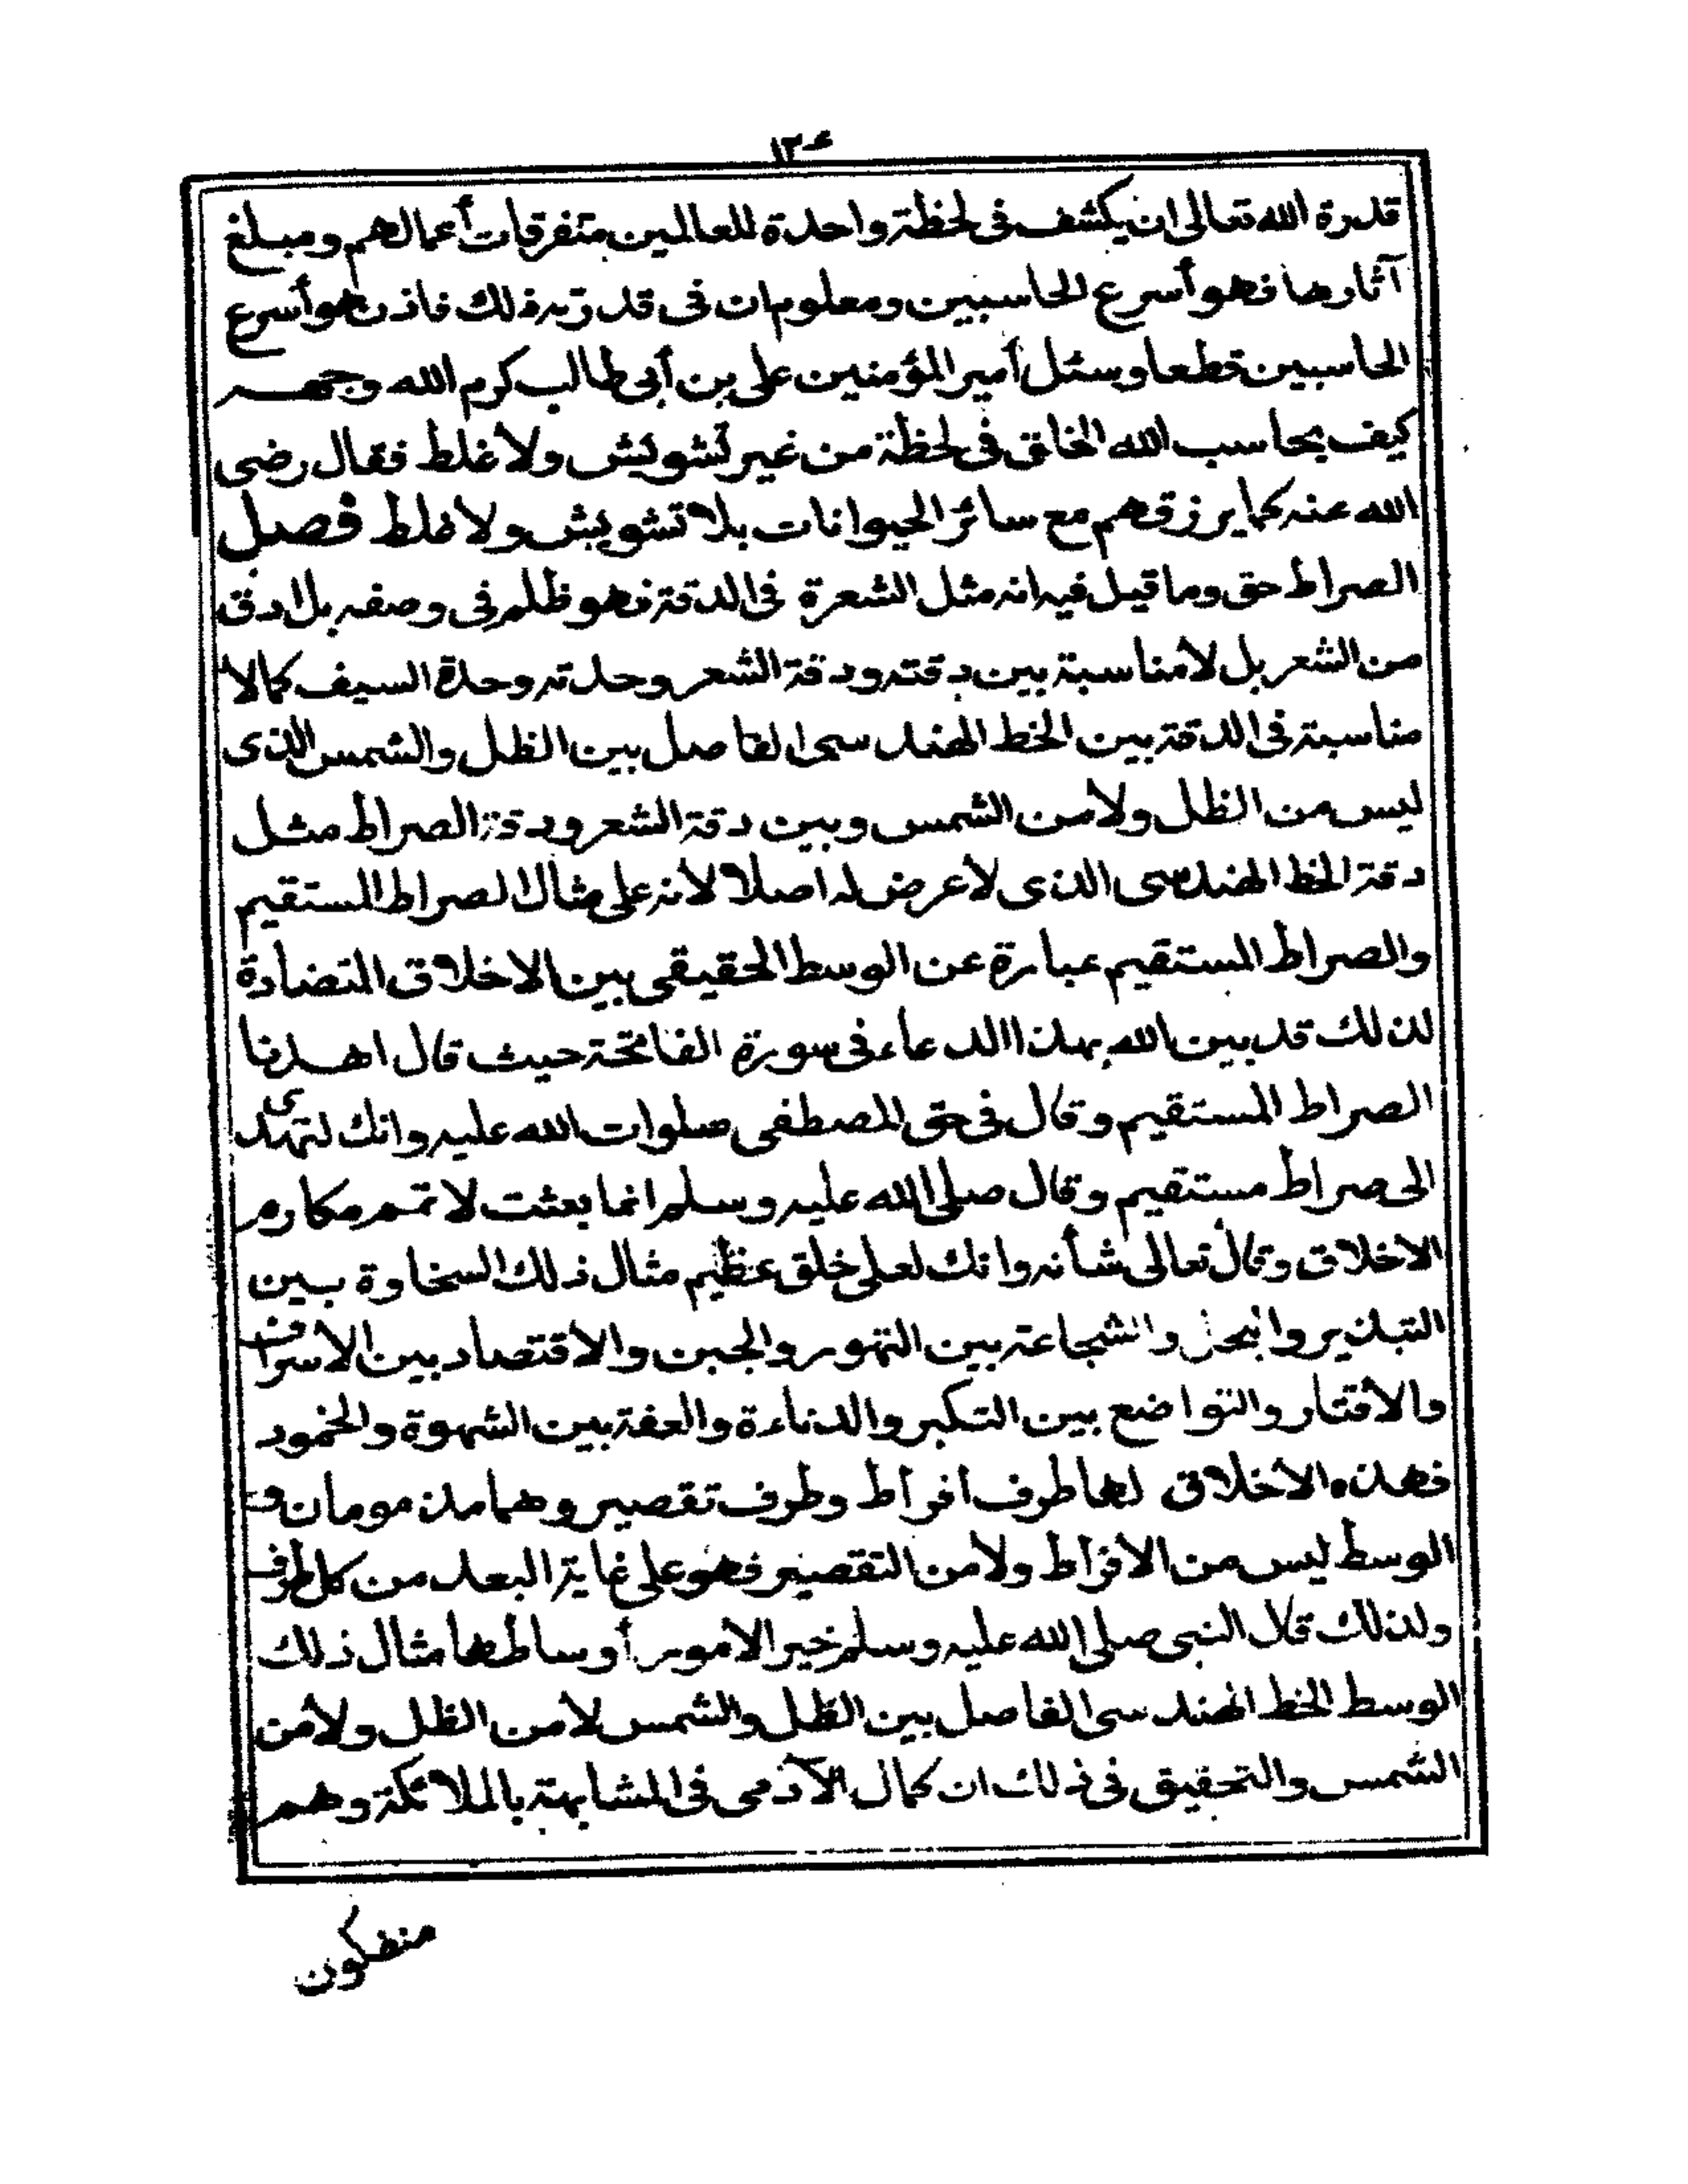 قدرة الله تعالى ان يكشف فى لحظة واحدة للعالمين متفرقات أعمالهم ومبلغ
آثارها فهو أسرع الحاسبين ومعلوم ان فى قدرته ذلك فاذن هو أسرع
الحاسبين قطعا وسئل أمير المؤمنين على بن أبى طالب كرم الله وجهه
كيف يحاسب الله الخلق فى لحظة من غير تشويش ولا غلط فقال رضى
الله عنه كما يرزقهم مع سائر الحيوانات بلا تشويش ولا غلط فصل
الصراط حق وما قيل فيه انه مثل الشعرة فى الدقة فهو ظلم فى وصفه بل ادق
من الشعر بل لا مناسبة بين دقته ودقة الشعر وحدته وحدة السيف كما لا
مناسبة فى الدقة بين الخط الهندسى الفاصل بين الظل والشمس الذى
ليس من الظل ولا من الشمس وبين دقة الشعر ودقة الصراط مثل
دقة الخط الهندسى الذى لا عرض له اصلا لأنه على مثال الصراط المستقيم
والصراط المستقيم عبارة عن الوسط الحقيقى بين الاخلاق المتضادة
لذلك قد بين الله بهذا الدعاء فى سورة الفاتحة حيث قال اهدنا
الصراط المستقيم وقال فى حق المصطفى صلوات الله عليه وانك لتهدى
الى صراط مستقيم وقال صلى الله عليه وسلم انما بعثت لا تمم مكارم
الاخلاق وقال تعالى شأنه وانك لعلى خلق عظيم مثال ذلك السخاوة بين
التبذير والبخل والشجاعة بين التهور والجبن والاقتصاد بين الاسراف
والاقتار والتواضع بين التكبر والدناءة والعفة بين الشهوة والخمود
فهذه الاخلاق لها طرف افراط وطرف تقصير وهما مذمومان و
الوسط ليس من الافراط ولا من التقصير فهو على غاية البعد من كل طرف
ولذلك قال النبى صلى الله عليه وسلم خير الامور أوساطها مثال ذلك
الوسط الخط الهندسى الفاصل بين الظل والشمس لا من الظل ولا من
الشمس والتحقيق فى ذلك ان كمال الآدمى فى المشابهة بالملائكة وهم
منفكون